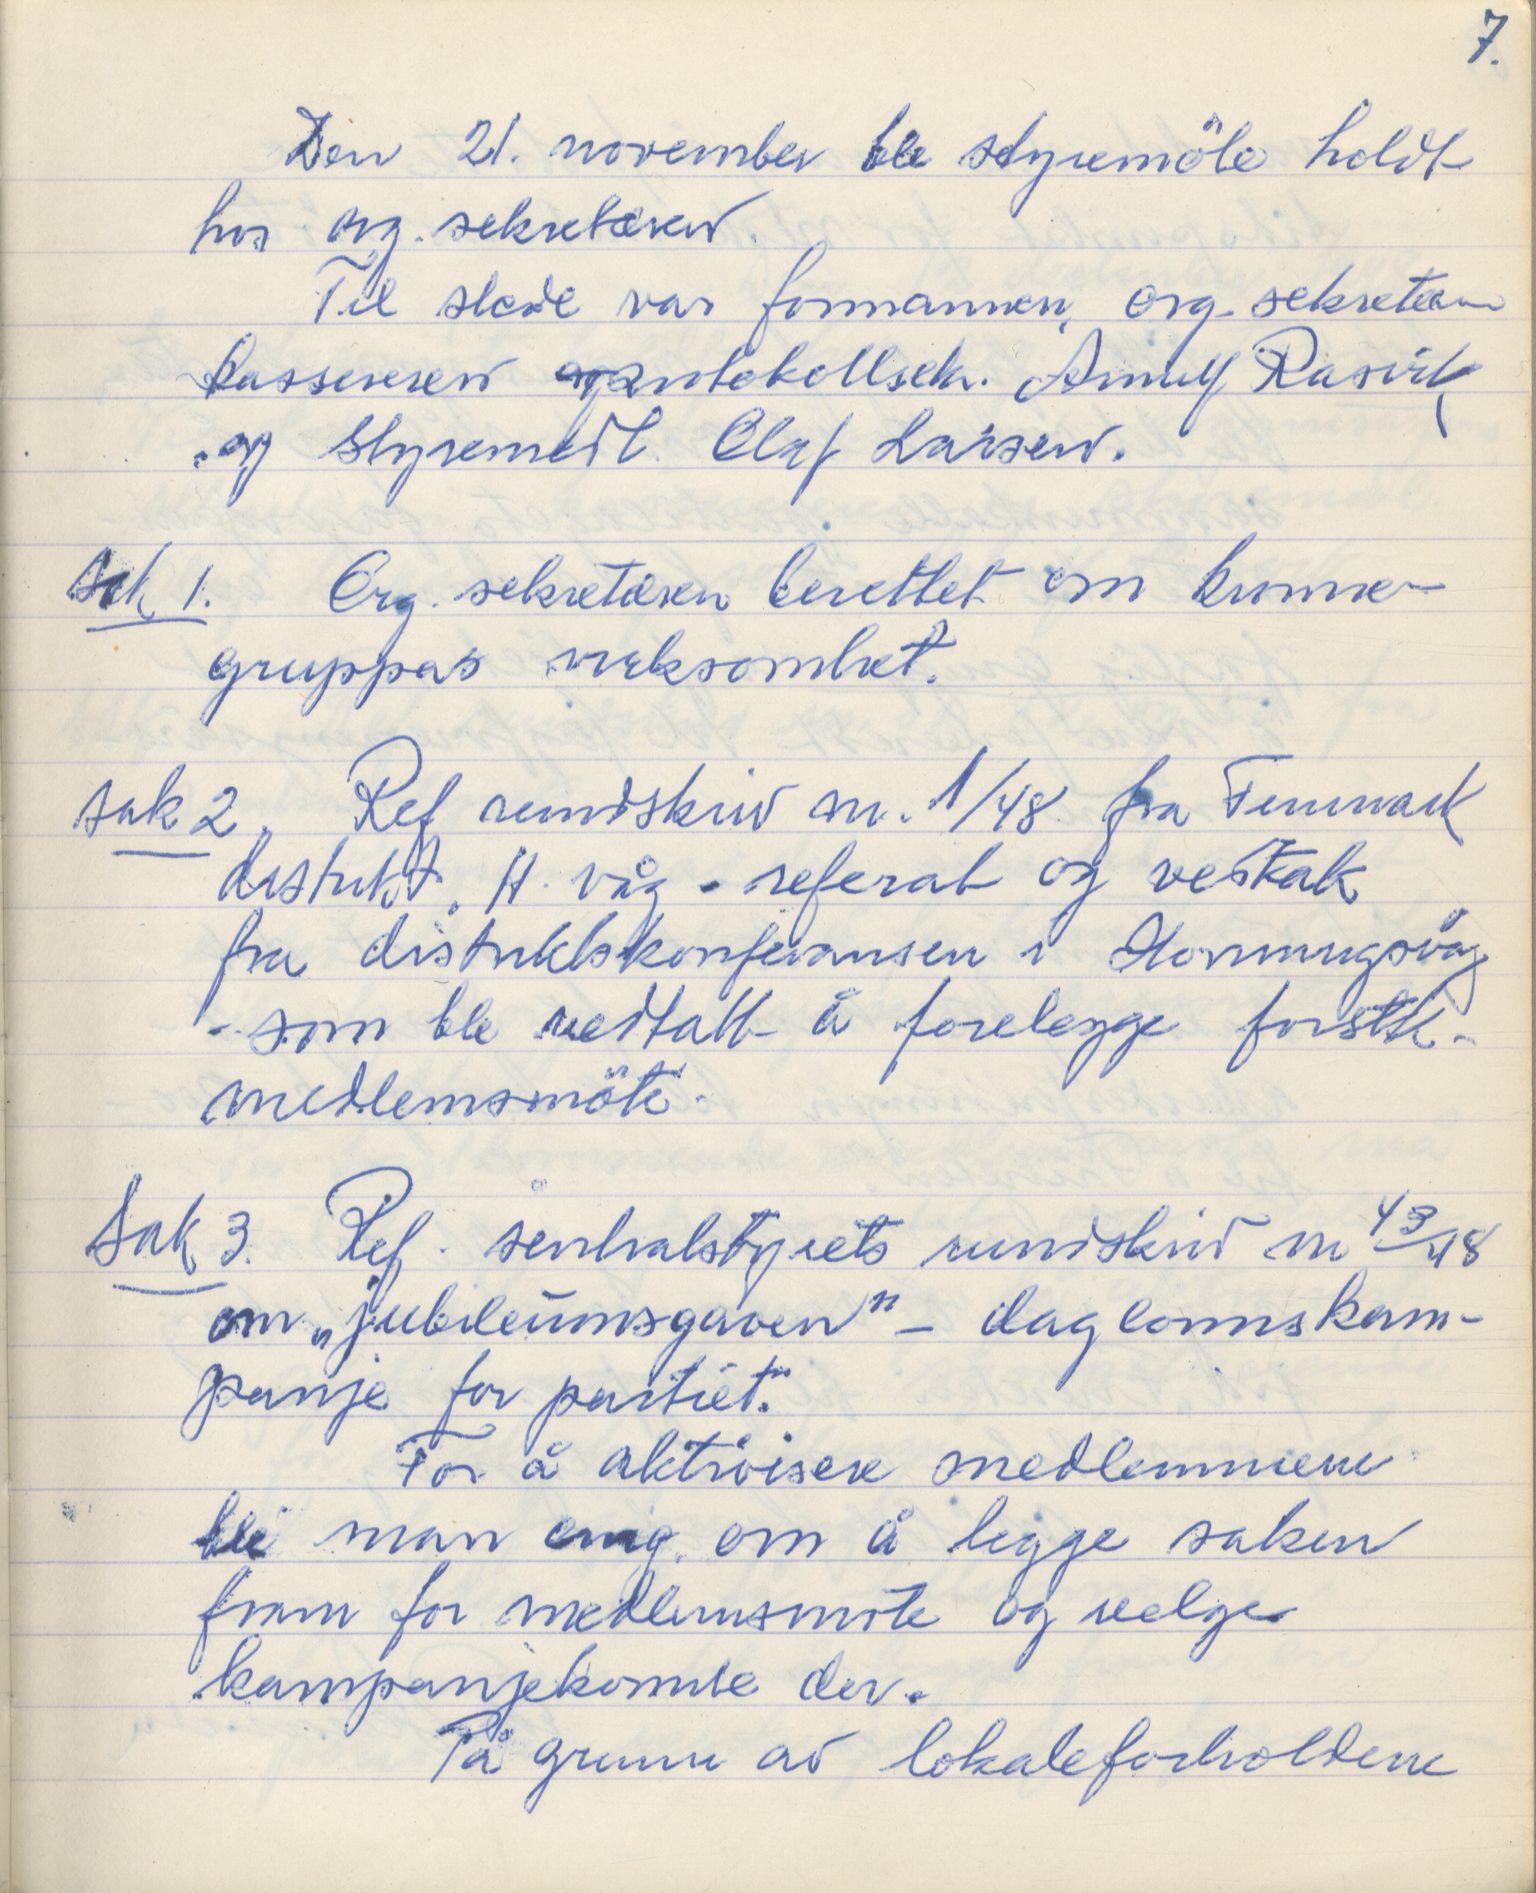 7.
Den 21. november ble styremöte holdt
hos org. sekretæren.
Til stede var formannen, org. sekretær
kassereren protokollsek. Arnulf Rasvik
og styremedl. Olaf Larsen.
Sak 1. Org. sekretæren berettet om kvinne-
gruppas virksomhet.
Sak 2. Ref rundskriv nr. 1/48 fra Finnmark
distrikt, H. våg - referat og vedtak
fra distriktskonferansen i Honningsvåg
- som ble vedtatt å forelegge förstk.
medlemsmöte.
Sak 3. Ref. sentralstyrets rundskriv nr 43/48
om „jubileumsgaven" - daglönnskam-
panje for partiet."
For å aktivisere medlemmene
ble man enig om å legge saken
fram for medlemsmöte og velge
kampanjekomite der.
På grunn av lokaleforholdene